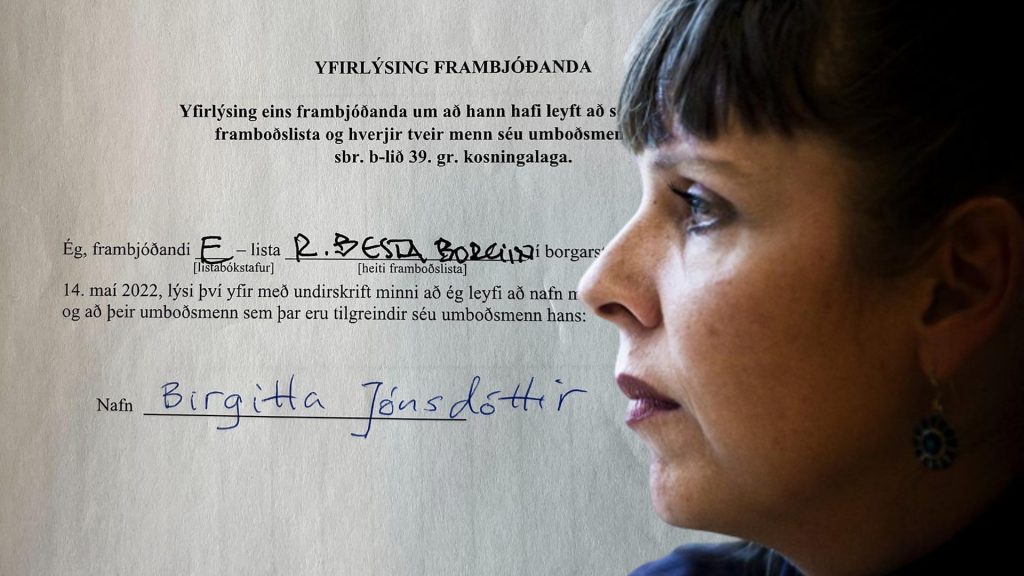 YFIRLÝSING FRAMBJÓÐANDA
Yfirlýsing eins frambjóðanda um að hann hafi leyft að s
framboðslista og hverjir tveir menn séu umboðsmen
sbr. b-lið 39. gr. kosningalaga.
Ég, frambjóðandi E – lista R. BESTA BORGIN í borgars
[listabókstafur] [heiti framboðslista]
14. maí 2022, lýsi því yfir með undirskrift minni að ég leyfi að nafn m
og að þeir umboðsmenn sem þar eru tilgreindir séu umboðsmenn hans:
Nafn Birgitta Jónsdóttir